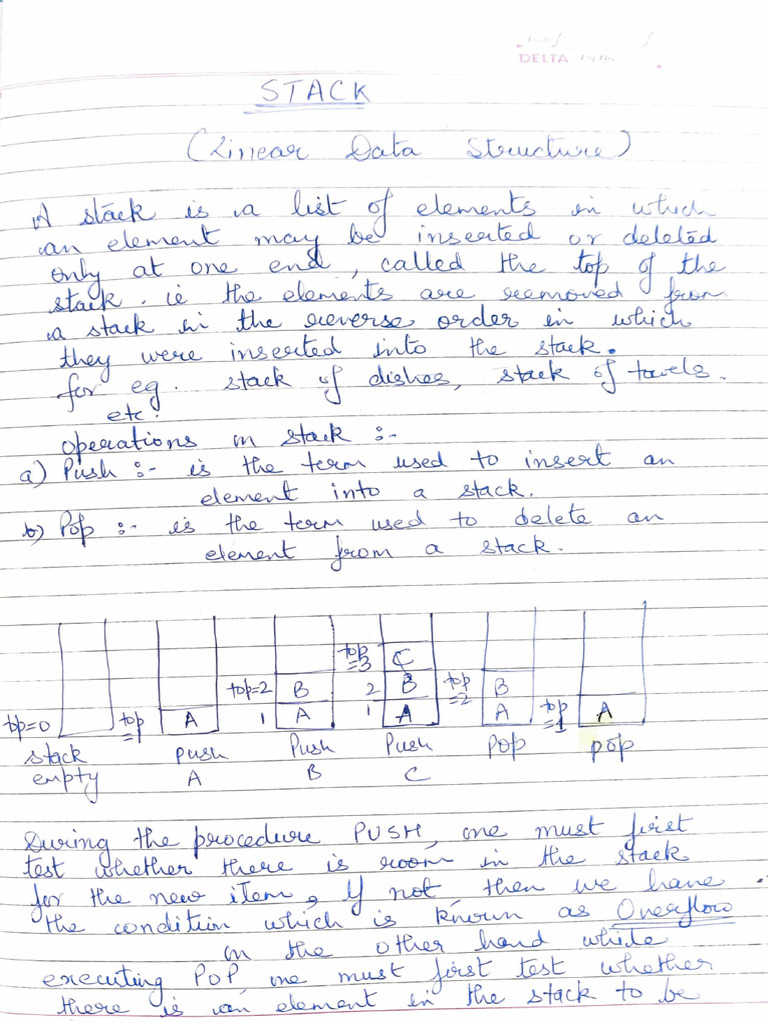 DELTA
STACK
(Linear Data Structure)
A stack is a list of elements in which
an element may be inserted or deleted
only at one end, called the top of the
stack. ie the elements are removed from
a stack in the reverse order in which
they were inserted into the stack.
for eg. stack of dishes, stack of towels.
etc.
operations on stack :-
a) Push :- is the term used to insert an
element into a stack.
b) Pop :- is the term used to delete an
element from a stack.
top=3 C
top=2 B 2 B top=2 B
top=0 top=1 A 1 A 1 A A top=1 A
stack push Push Push Pop pop
empty A B C
During the procedure PUSH, one must first
test whether there is room in the stack
for the new item, If not, then we have
the condition which is known as Overflow
on the other hand while
executing POP one must first test whether
there is an element in the stack to be